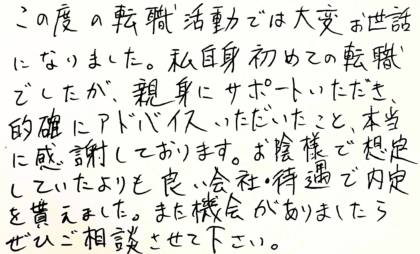 この度の転職活動では大変お世話
になりました。私自身初めての転職
でしたが、親身にサポートいただき、
的確にアドバイスいただいたこと、本当
に感謝しております。お陰様で想定
していたよりも良い会社・待遇で内定
を貰えました。また機会がありましたら
ぜひご相談させて下さい。